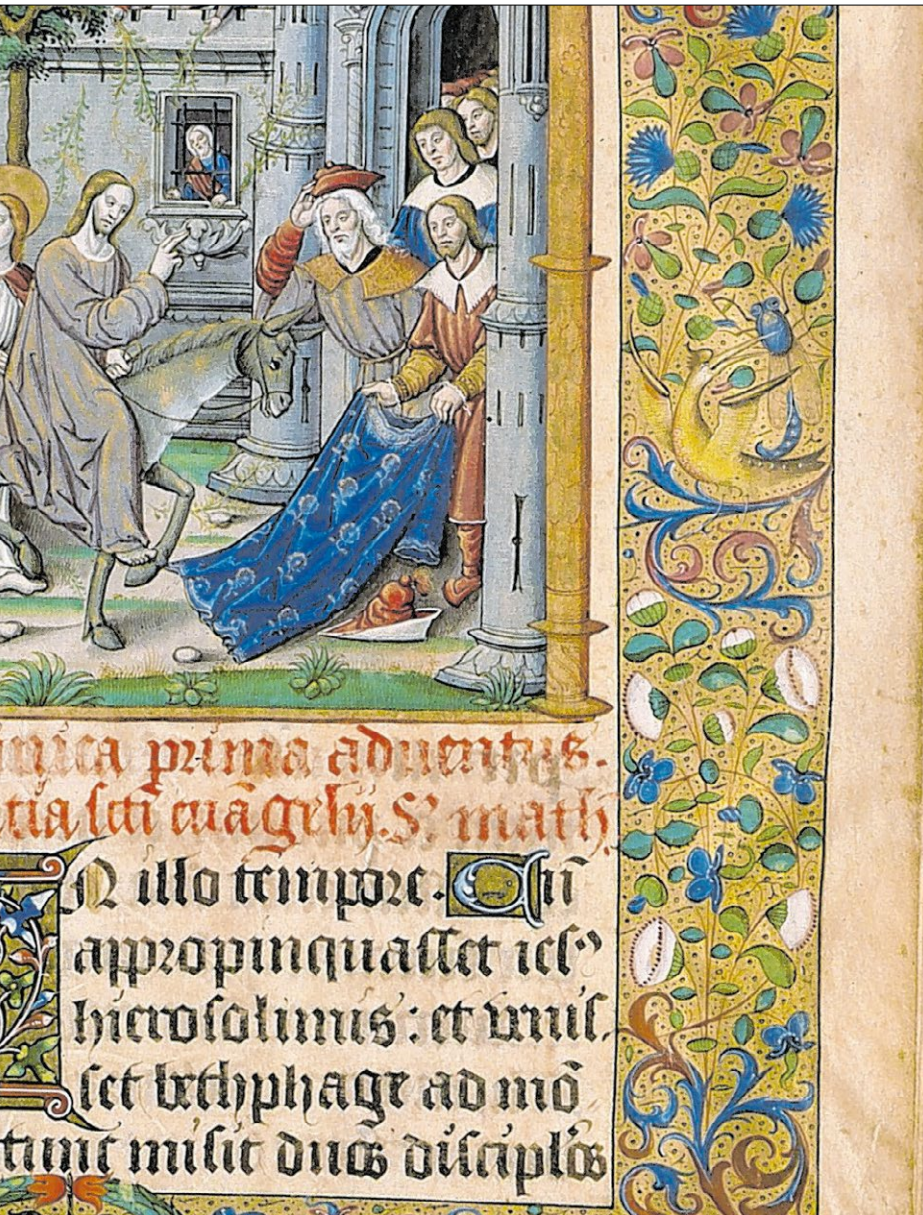 prima aduentus.
scti euāgelii. Sʒ math
N illo tempore. Cū
appropinquasset iesꝰ
hierosolimis: et venis
set bethphage ad mō
tunc misit duos discipl̄os